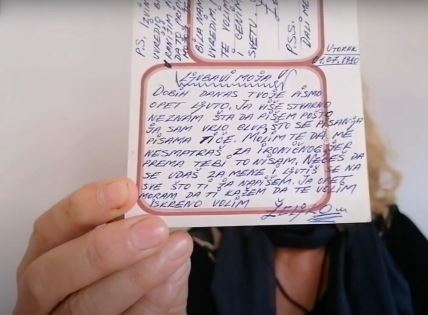 P.S.
UVREDIO
DA TO
BILA
UVREDIM
TE VOLI
I CENI
SVETU
P.S.S.
UTORAK
LJUBAVI MOJA!
DOBIH DANAS TVOJE PISMO
OPET LJUTO, JA VIŠE STVARNO
NEZNAM ŠTA DA PIŠEM POŠTO
JA SAM VRLO GLUP ŠTO SE PISANJA
PISAMA TIČE. MOLIM TE DA ME
NESMATRAŠ ZA IRONIČNOG JER
PREMA TEBI TO NISAM. NEĆEŠ DA
SE UDAŠ ZA MENE, I LJUTIŠ SE NA
SVE ŠTO TI JA NAPIŠEM. JA OPET
MORAM DA TI KAŽEM DA TE VOLIM
ISKRENO VOLIM